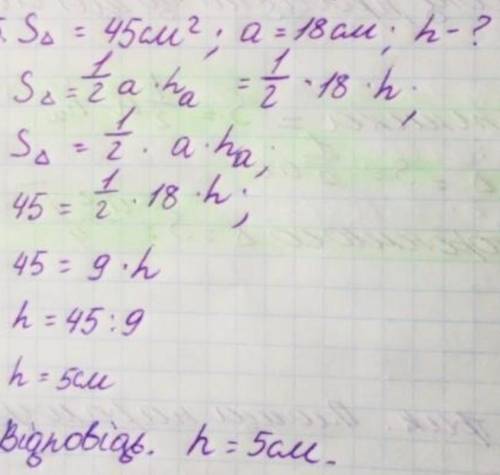 S△ = 45см²; a = 18см; h - ?
S△ = 1/2 a · hₐ = 1/2 · 18 · h;
S△ = 1/2 · a · hₐ;
45 = 1/2 · 18 · h;
45 = 9 · h
h = 45 : 9
h = 5см
Відповідь. h = 5см.